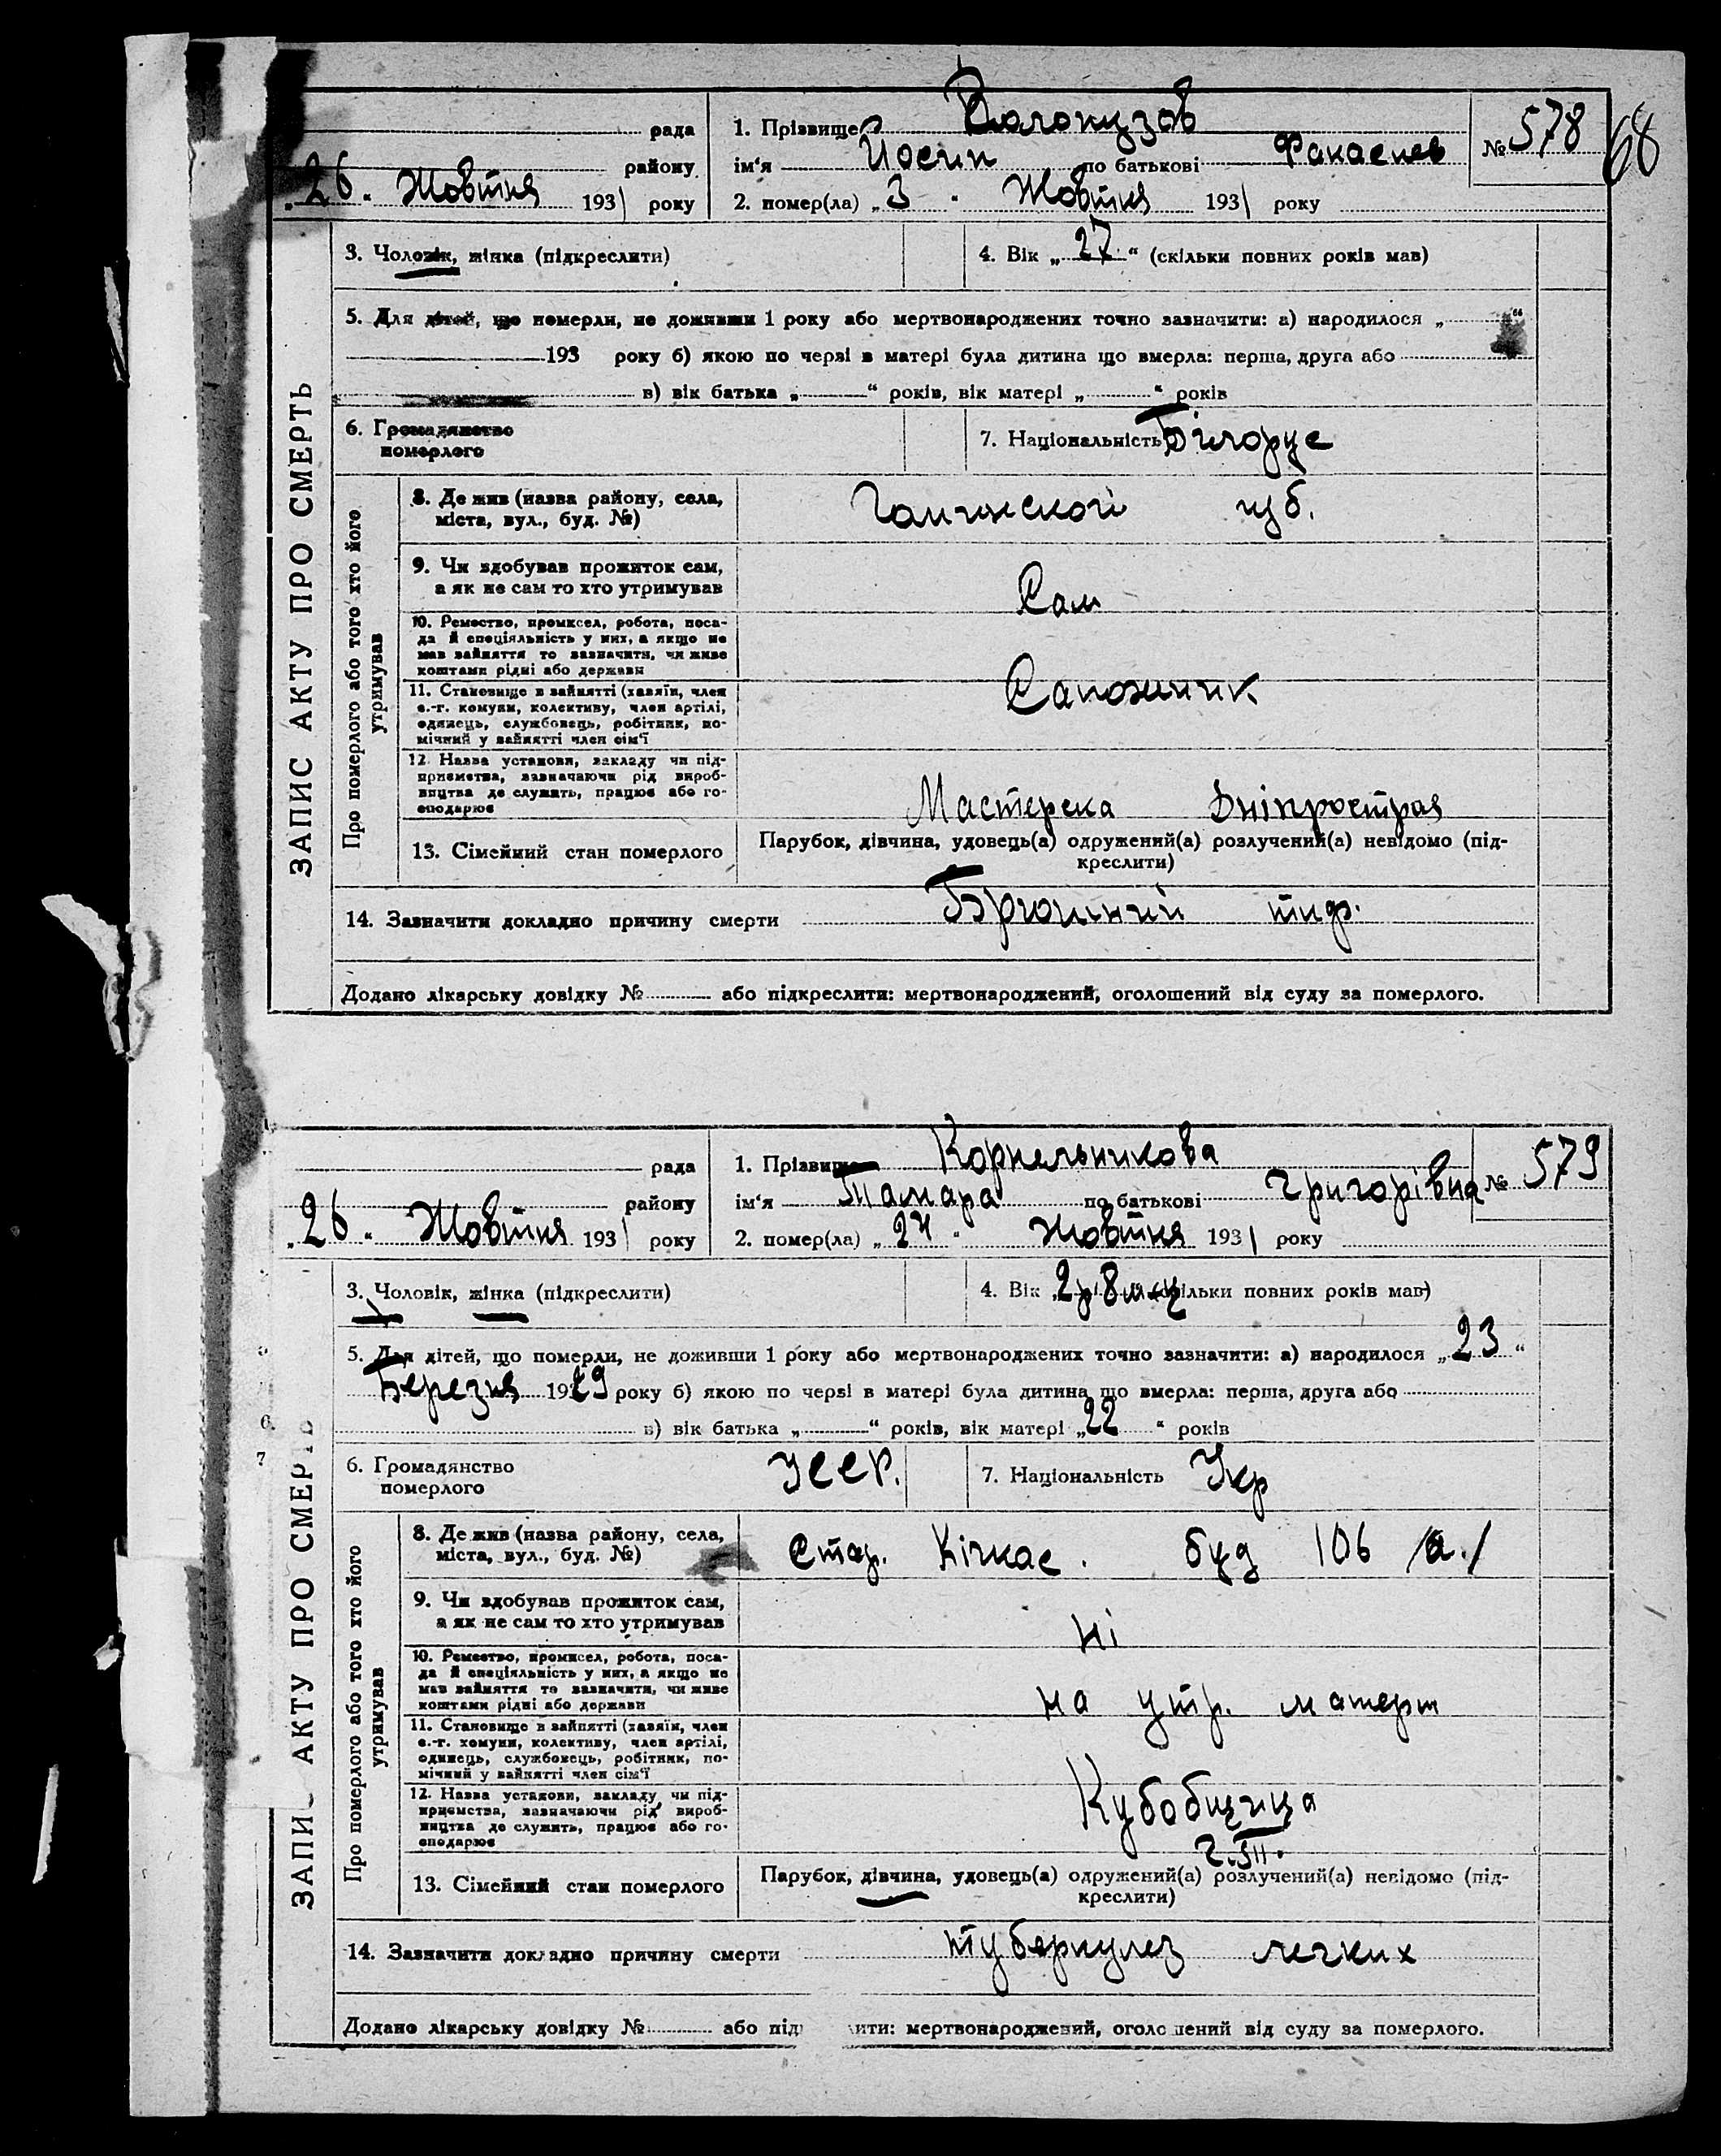 68
рада 1. Прізвище Волокузов № 578
району ім'я Йосип по батькові
„26" Жовтня 1931 року 2. помер(ла) „3" Жовтня 1931 року
3. Чоловік, жінка (підкреслити) 4. Вік „27" (скільки повних років мав)
5. Для дітей, що померли, не доживши 1 року або мертвонароджених точно зазначити: а) народилося „ "
193 року б) якою по черзі в матері була дитина що вмерла: перша, друга або
в) вік батька „ " років, вік матері „ " років
6. Громадянство
померлого
7. Національність
8. Де жив (назва району, села,
міста, вул., буд. №)
9. Чи здобував прожиток сам,
а як не сам то хто утримував
Сам
10. Ремество, промисел, робота, поса-
да й спеціяльність у них, а якщо не
мав зайняття то зазначити, чи живе
коштами рідні або держави
Сапожник
11. Становище в зайнятті (хазяїн, член
с.-г. комуни, колективу, член артілі,
одинець, службовець, робітник, по-
мічний у зайнятті член сім'ї
12. Назва установи, закладу чи під-
приємства, зазначаючи рід вироб-
ництва де служить, працює або го-
сподарює
Мастерска Дніпрострая
13. Сімейний стан померлого Парубок, дівчина, удовець(а) одружений(а) розлучений(а) невідомо (під-
креслити)
14. Зазначити докладно причину смерти Брюшний тиф.
Додано лікарську довідку № або підкреслити: мертвонароджений, оголошений від суду за померлого.
ЗАПИС АКТУ ПРО СМЕРТЬ
Про померлого або того хто його
утримував
рада 1. Прізвище Корпельникова № 579
району ім'я Тамара по батькові Григорівна
„26" Жовтня 1931 року 2. помер(ла) „24" Жовтня 1931 року
3. Чоловік, жінка (підкреслити) 4. Вік 2р 8 м-ц (скільки повних років мав)
5. Для дітей, що померли, не доживши 1 року або мертвонароджених точно зазначити: а) народилося „23"
Березня 1929 року б) якою по черзі в матері була дитина що вмерла: перша, друга або
в) вік батька „ " років, вік матері „22" років
6. Громадянство
померлого
УССР.
7. Національність Укр
8. Де жив (назва району, села,
міста, вул., буд. №)
Стар. Кічкас. буд 106 /а./
9. Чи здобував прожиток сам,
а як не сам то хто утримував
Ні
10. Ремество, промисел, робота, поса-
да й спеціяльність у них, а якщо не
мав зайняття то зазначити, чи живе
коштами рідні або держави
на утр. матери
11. Становище в зайнятті (хазяїн, член
с.-г. комуни, колективу, член артілі,
одинець, службовець, робітник, по-
мічний у зайнятті член сім'ї
12. Назва установи, закладу чи під-
приємства, зазначаючи рід вироб-
ництва де служить, працює або го-
сподарює
13. Сімейний стан померлого Парубок, дівчина, удовець(а) одружений(а) розлучений(а) невідомо (під-
креслити)
14. Зазначити докладно причину смерти туберкулез легких
Додано лікарську довідку № або під ити: мертвонароджений, оголошений від суду за померлого.
ЗАПИС АКТУ ПРО СМЕРТЬ
Про померлого або того хто його
утримував